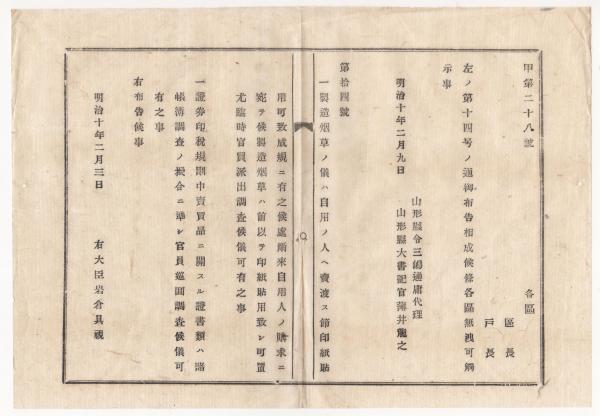 甲第二十八號
各區
區長
戸長
左ノ第十四号ノ通御布告相成候條各區無洩可觸
示事
明治十年二月九日
山形縣令三島通庸代理
山形縣大書記官薄井龍之
第拾四號
一製造烟草ノ儀ハ自用ノ人ヘ賣渡ス節印紙貼
用可致成規ニ有之候處爾來自用人ノ購求ニ
宛テ候製造烟草ハ前以テ印紙貼用致シ可置
尤臨時官員派出調査候儀可有之事
一證券印税規則中賣買品ニ關スル證書類ハ諸
帳簿調査ノ振合ニ準シ官員巡回調査候儀可
有之事
右布告候事
明治十年二月三日
右大臣岩倉具視